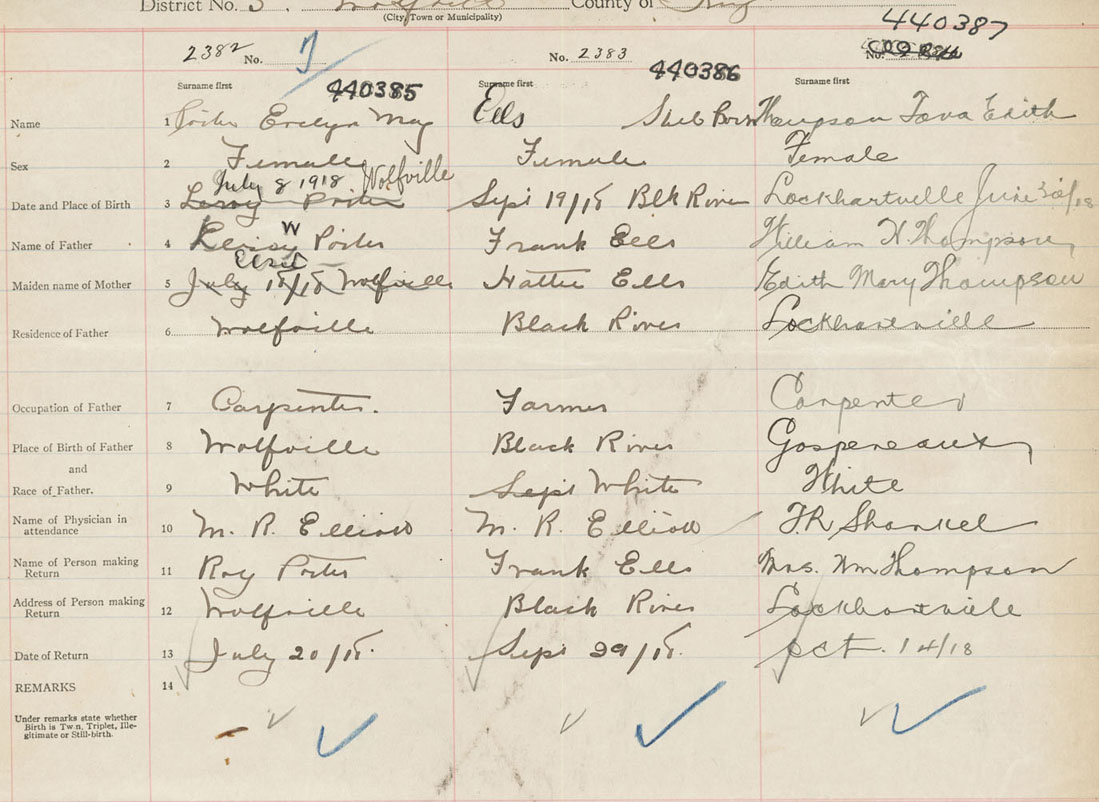 District No. 3. Wolfville County of
(City, Town or Municipality)
440387
2382 No.
No. 2383
No.
440385
440386
Surname first Surname first Surname first
Name 1 Porter Evelyn May Eels Still Born Thompson Edith
Sex 2 Female Female Female
July 8 1918 Wolfville
Date and Place of Birth 3 Leroy Porter Sept 19/18 Blk River Lockhartville June 30/18
W
Name of Father 4 Porter Frank Eells William H. Thompson
Maiden name of Mother 5 July 18/18 Wolfville Hattie Eells Edith Mary Thompson
Residence of Father 6 Wolfville Black River Lockhartville
Occupation of Father 7 Carpenter. Farmer Carpenter
Place of Birth of Father 8 Wolfville Black River Gospereaux
and
Race of Father. 9 White Sept White White
Name of Physician in attendance 10 M. R. Elliott M. R. Elliott
Name of Person making Return 11 Roy Porter Frank Eells Mrs. Wm Thompson
Address of Person making Return 12 Wolfville Black River Lockhartville
Date of Return 13 July 20/18. Sept 29/18. Oct. 14/18
REMARKS 14
Under remarks state whether
Birth is Twin, Triplet, Ille-
gitimate or Still-birth.